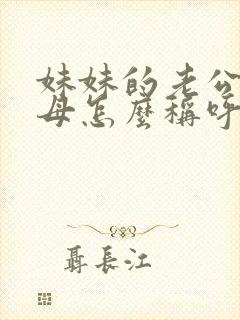 妹妹的老公
母怎麼稱呼
聶長江